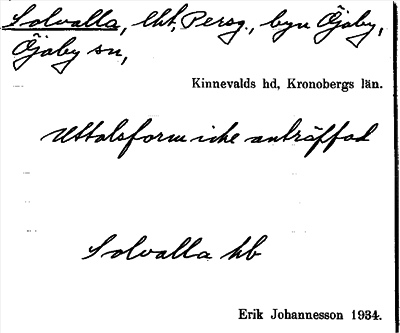 Solvalla, lht, Persg., byn Öjaby,
Öjaby sn,
Kinnevalds hd, Kronobergs län.
Uttalsform icke anträffad
Solvalla hb
Erik Johannesson 1934.